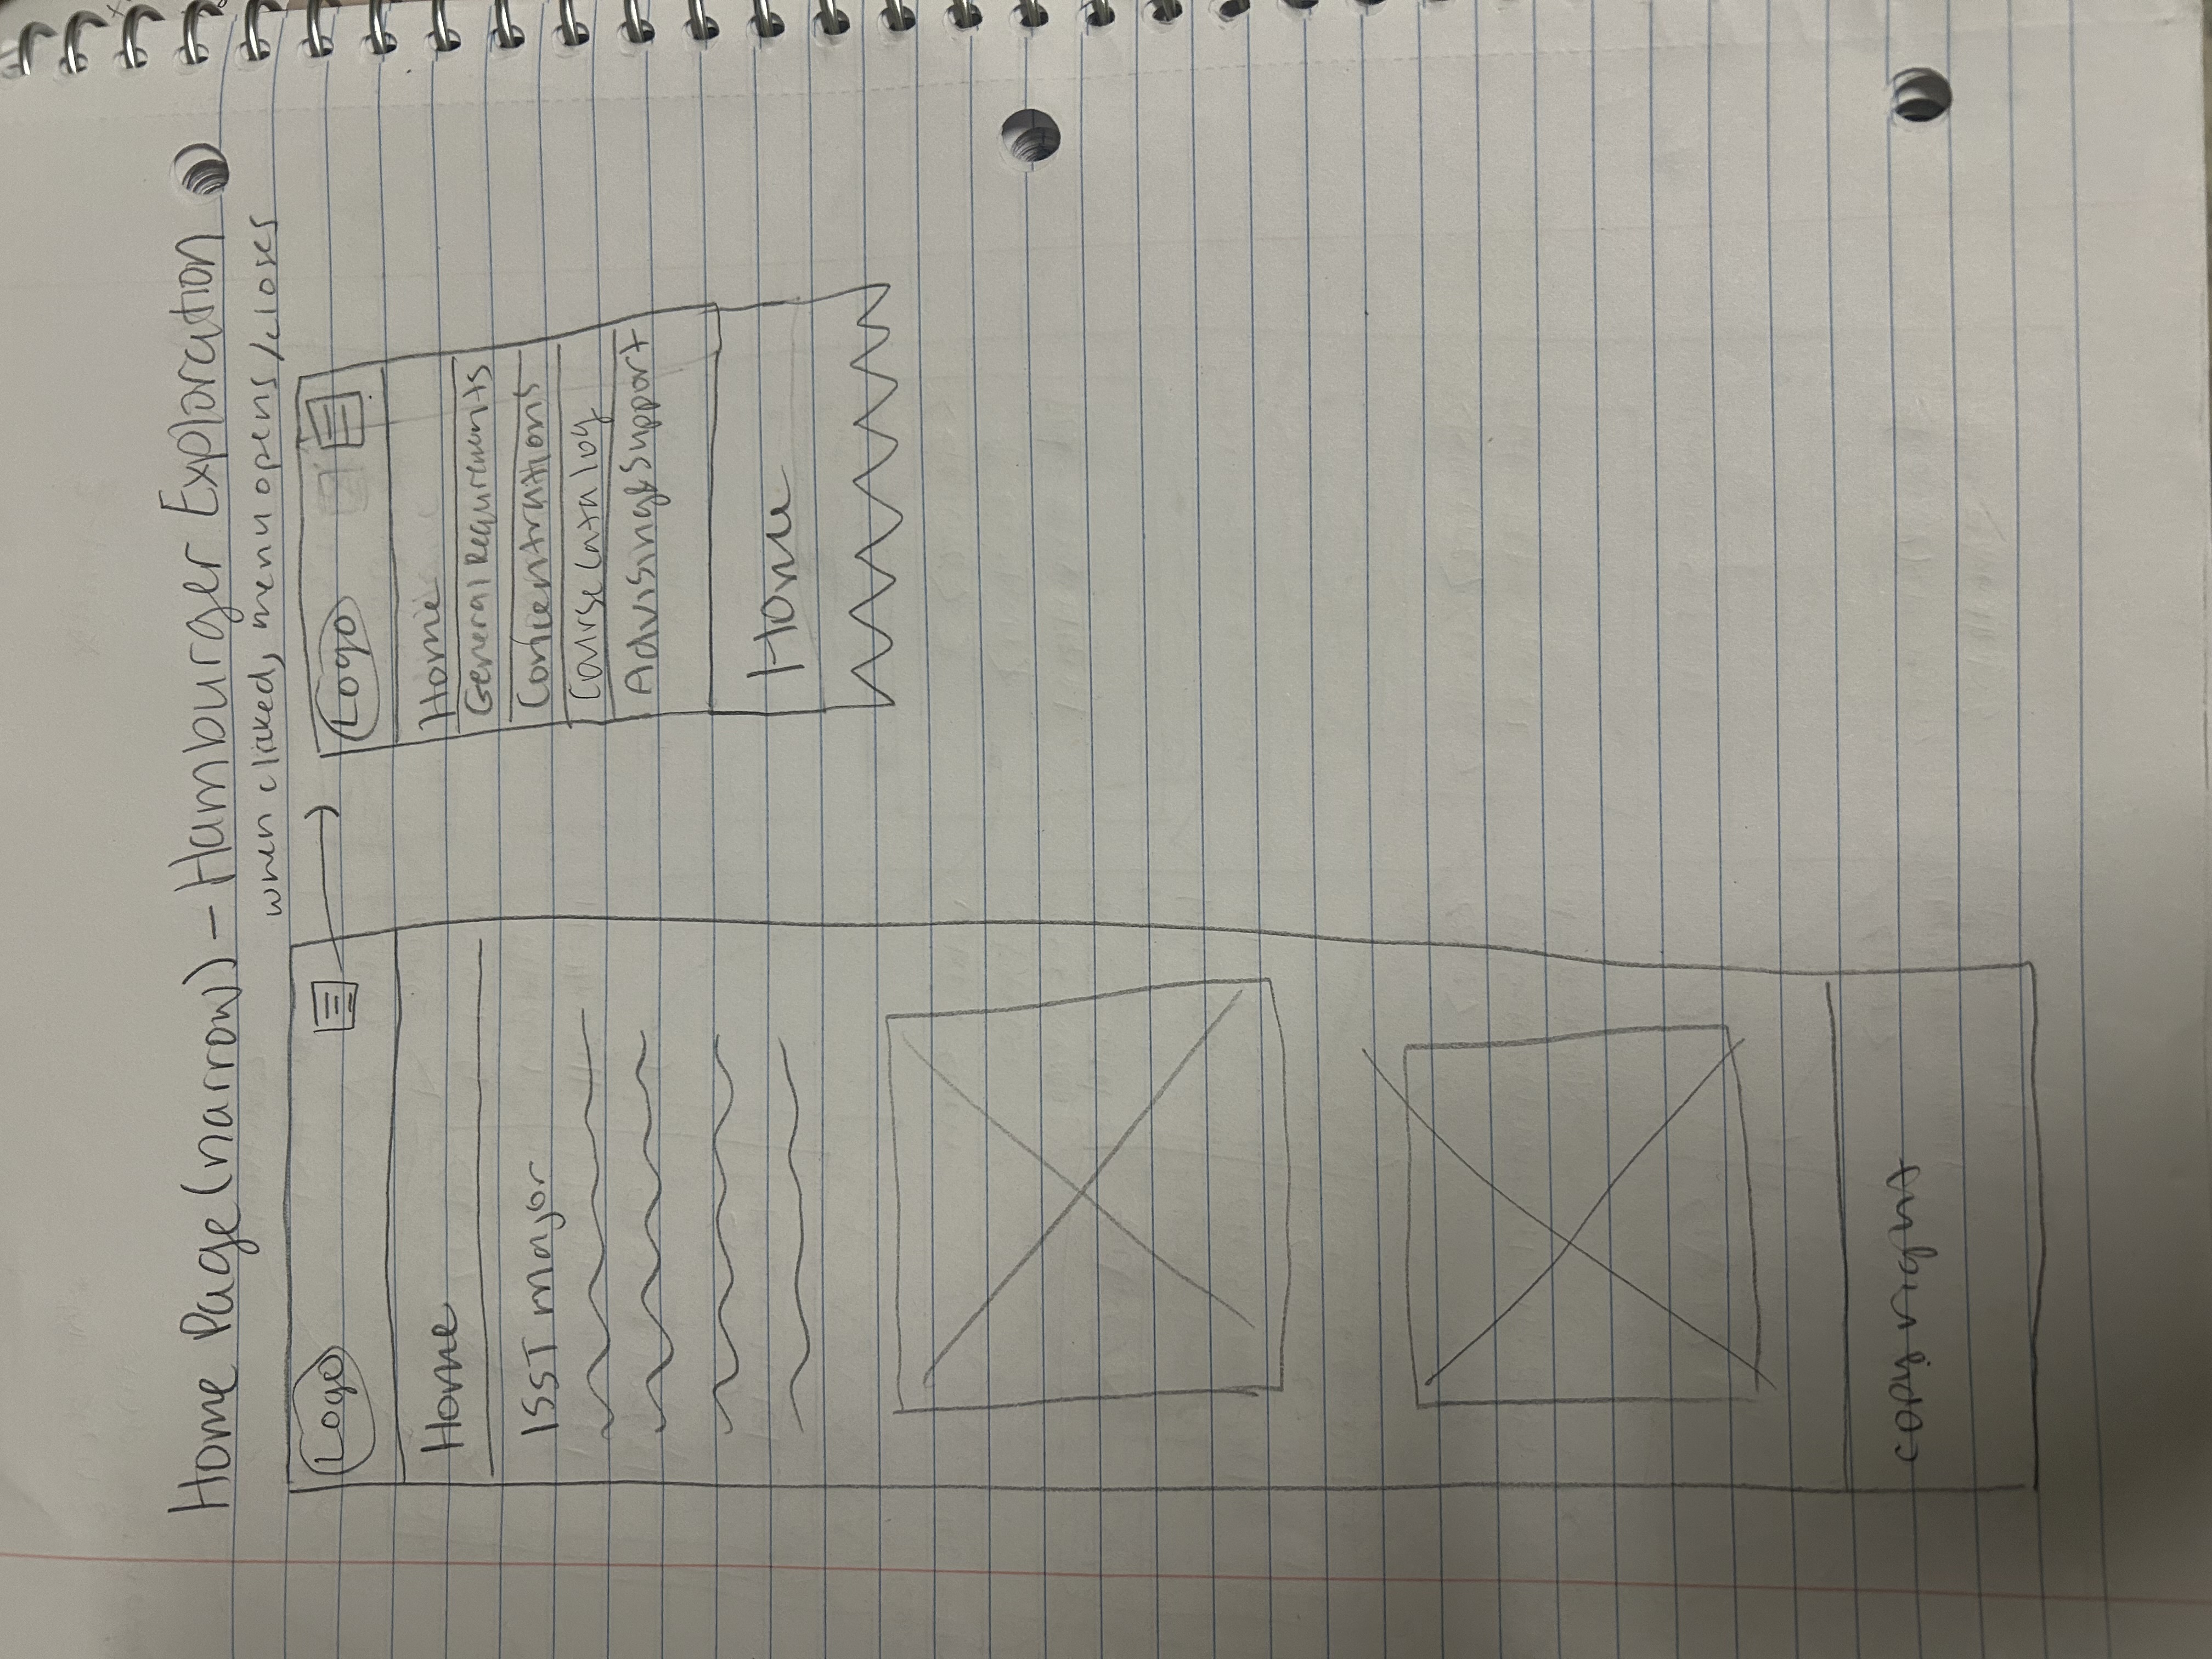 Home Page (narrow) - Hamburger Exploration
when clicked, menu opens/closes
Logo
Home
ISST major
copyright
Logo
Home
General Requirements
Concentrations
Course Catalog
Advising & Support
Home